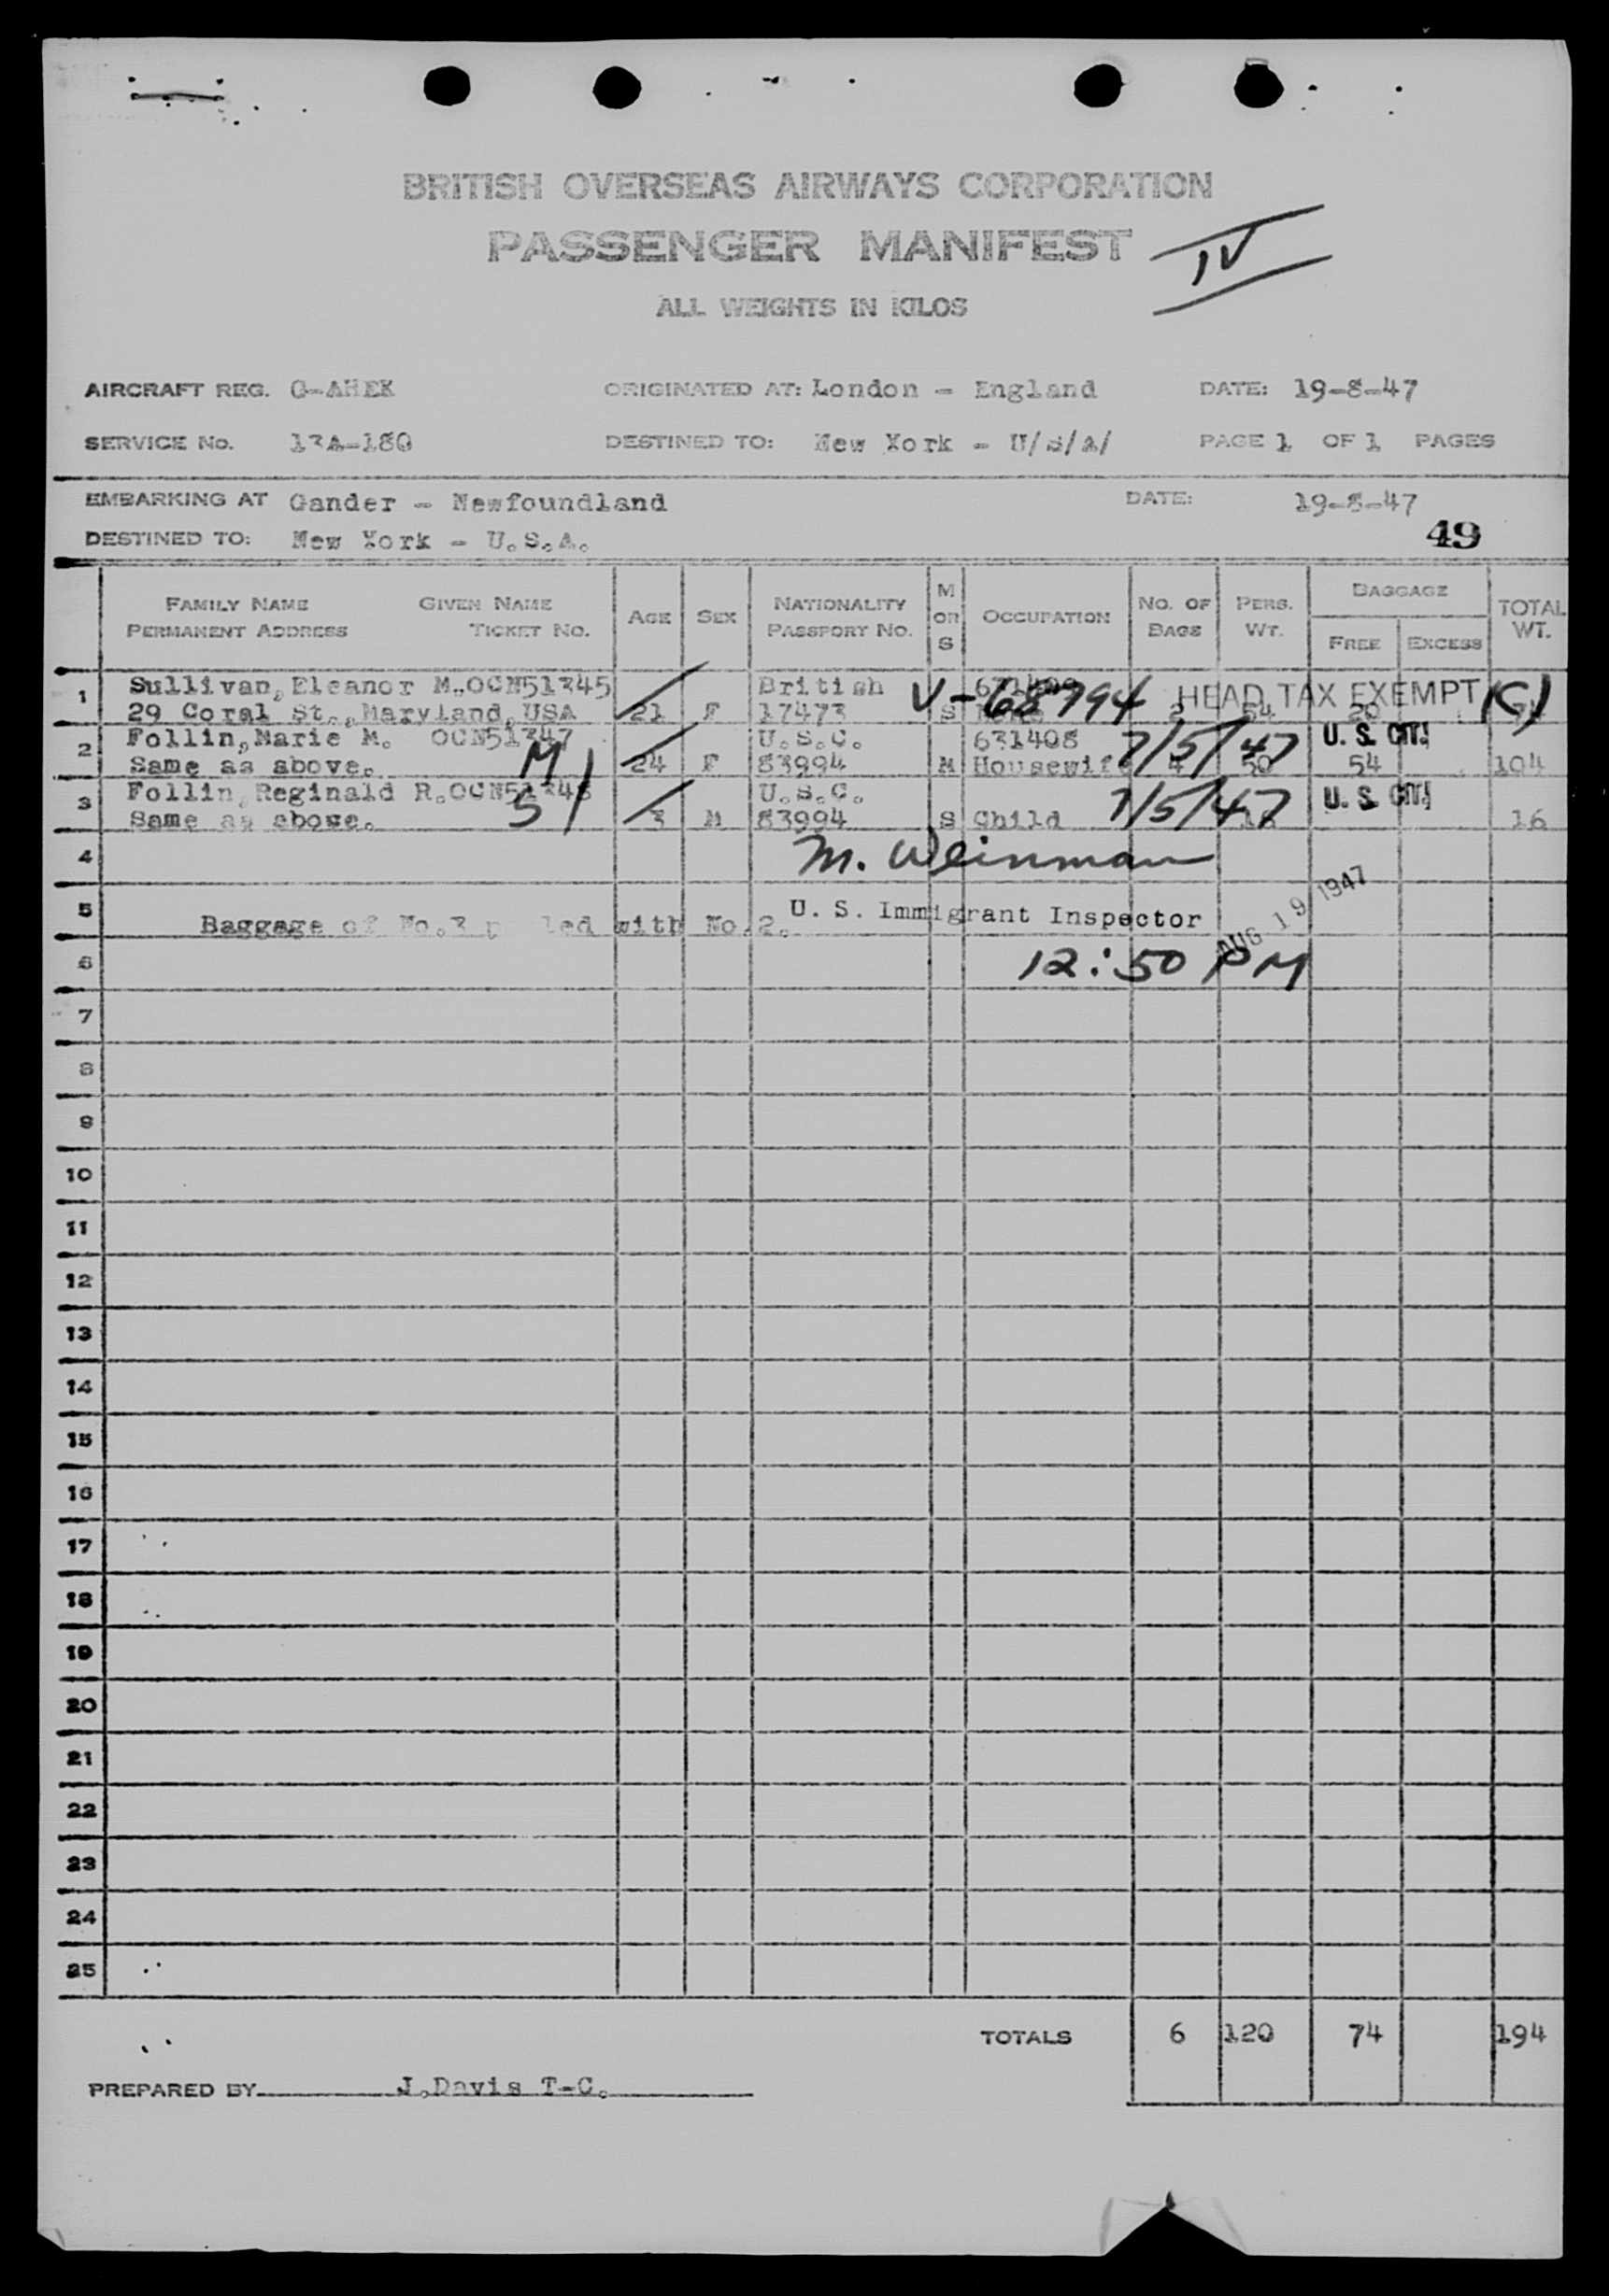 BRITISH OVERSEAS AIRWAYS CORPORATION
PASSENGER MANIFEST IV
ALL WEIGHTS IN KILOS
AIRCRAFT REG. G-AHEK ORIGINATED AT: London - England DATE: 19-8-47
SERVICE No. 13A-180 DESTINED TO: New York - U/S/A/ PAGE 1 OF 1 PAGES
EMBARKING AT Gander - Newfoundland DATE: 19-8-47
DESTINED TO: New York - U.S.A. 49
FAMILY NAME GIVEN NAME AGE SEX NATIONALITY M OR S OCCUPATION NO. OF BAGS PERS. WT. BAGGAGE TOTAL WT.
PERMANENT ADDRESS TICKET NO. PASSPORT NO. FREE EXCESS
1 Sullivan, Eleanor M. OCN51345 British V-68794 HEAD TAX EXEMPT (C)
29 Coral St., Maryland, USA 21 F 17473 S 2 54 20
2 Follin, Marie M. OCN51347 U.S.C. 631408 7/5/47 U. S. CIT.
Same as above. M 24 F 83994 M Housewife 4 50 54 104
3 Follin, Reginald R. OCN51348 U.S.C. 7/5/47 U. S. CIT.
Same as above. S 3 M 83994 S Child 16
4 M. Weinman
5 Baggage of No.3 with No.2. U. S. Immigrant Inspector AUG 19 1947
6 12:50 PM
7
8
9
10
11
12
13
14
15
16
17
18
19
20
21
22
23
24
25
TOTALS 6 120 74 194
PREPARED BY J.Davis T-C.